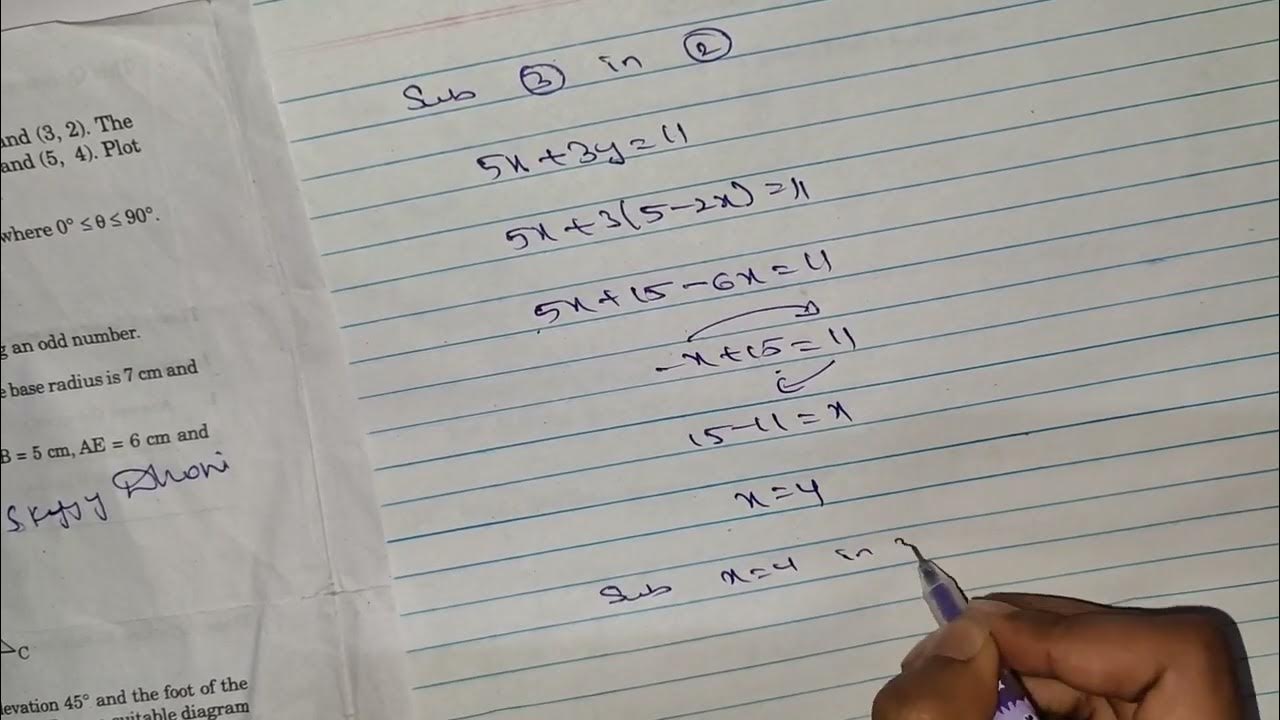 and (3, 2). The
and (5, 4). Plot
where 0° ≤ θ ≤ 90°.
g an odd number.
e base radius is 7 cm and
B = 5 cm, AE = 6 cm and
Dhoni
C
levation 45° and the foot of the
suitable diagram
Sub ③ in ②
5x+3y=11
5x+3(5-2x)=11
5x+15-6x=11
-x+15=11
15-11=x
x=4
Sub x=4 in